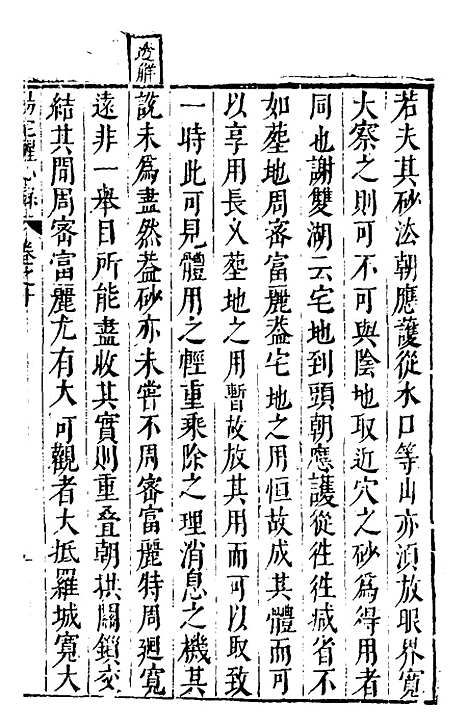 若夫其砂法朝應護從水口等山亦須放眼界寬
大察之則可不可與陰地取近穴之砂爲得用者
同也謝雙湖云宅地到頭朝應護從徃徃減省不
如塟地周審富麗葢宅地之用恒故成其體而可
以享用長乂塟地之用暫故放其用而可以取致
一時此可見體用之輕重乘除之理消息之機其
說未爲盡然葢砂亦未嘗不周審富麗特周廻寬
遠非一舉目所能盡收其實則重叠朝拱關鎖交
結其間周審富麗尤有大可觀者大抵羅城寬大